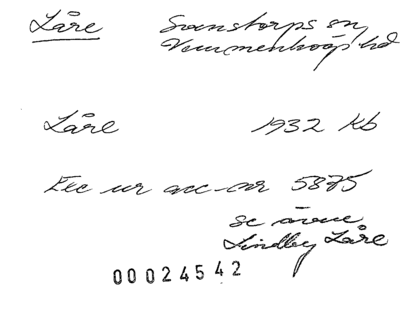 Låre Svenstorps sn
Vemmenhögs hd
Låre 1932 Kb
Exc ur acc-nr 5875
se även
Lindby Låre
00024542